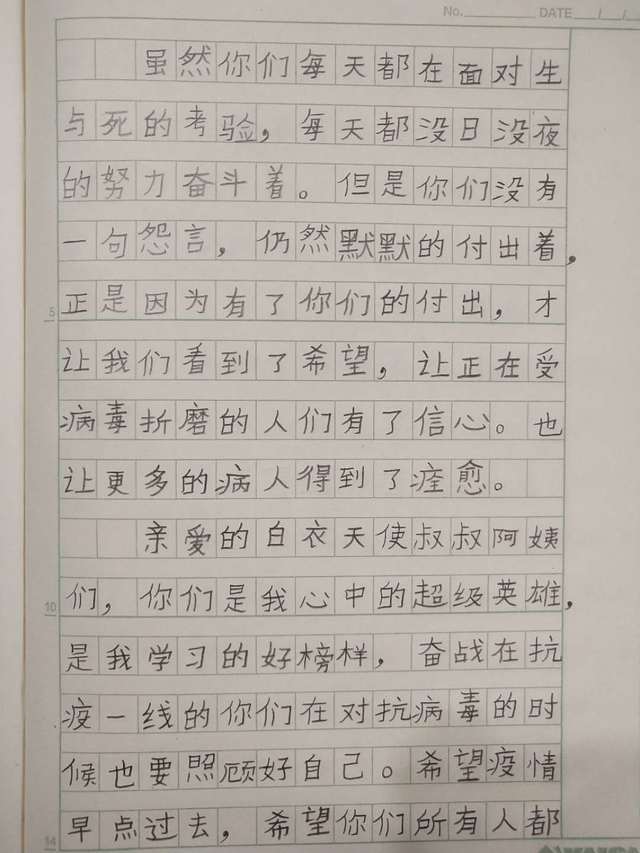 No. DATE / /
虽然你们每天都在面对生
与死的考验，每天都没日没夜
的努力奋斗着。但是你们没有
一句怨言，仍然默默的付出着，
5
正是因为有了你们的付出，才
让我们看到了希望，让正在受
病毒折磨的人们有了信心。也
让更多的病人得到了痊愈。
亲爱的白衣天使叔叔阿姨
10
们，你们是我心中的超级英雄，
是我学习的好榜样，奋战在抗
疫一线的你们在对抗病毒的时
候也要照顾好自己。希望疫情
14
早点过去，希望你们所有人都